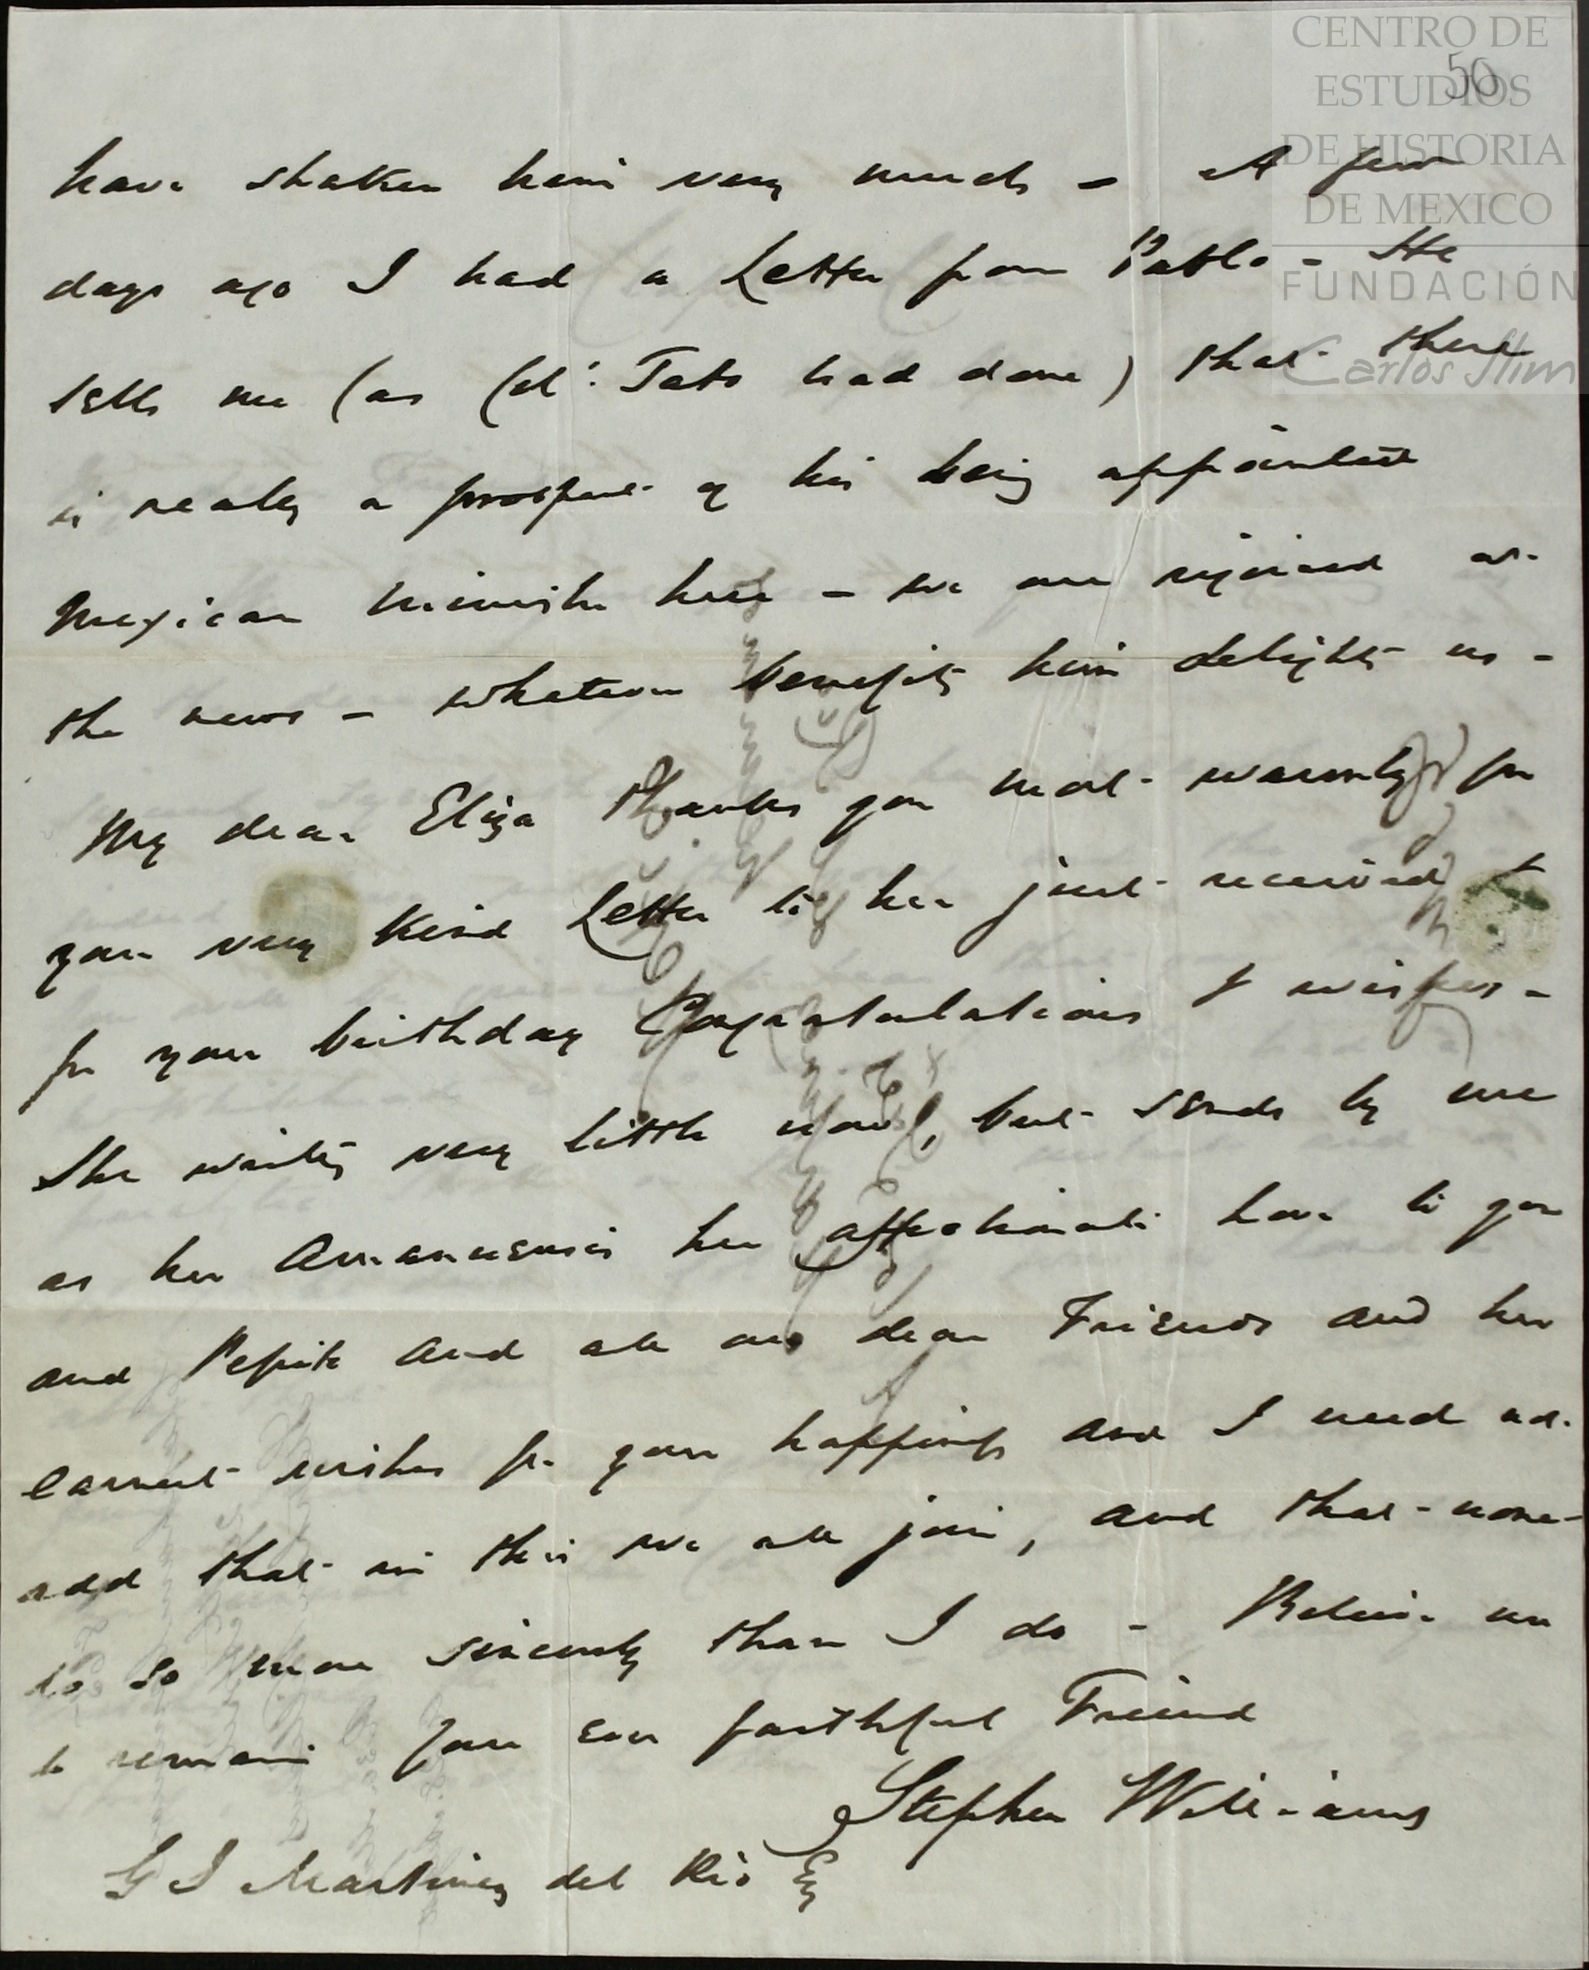 CENTRO DE
ESTUDIOS
DE HISTORIA
DE MEXICO
FUNDACIÓN
Carlos Slim
50
have shaken him very much - A few
days ago I had a Letter from Pablo - He
tells me (as Col: Tato had done) that there
is really a prospect of his being appointed
Mexican Minister here - we are rejoiced at
the news - whatever benefits him delights us -
My dear Eliza thanks you most warmly for
your very kind Letter to her just received &
for your birthday Congratulations & wishes -
She writes very little now, but sends by me
as her Amanuensis her affectionate love to you
and Pepita and all our dear Friends and her
earnest wishes for your happiness and I need not
add that in this we all join, and that none
do so more sincerely than I do - Believe me
to remain Your ever faithful Friend
Stephen Williams
G I Martinez del Rio Esq